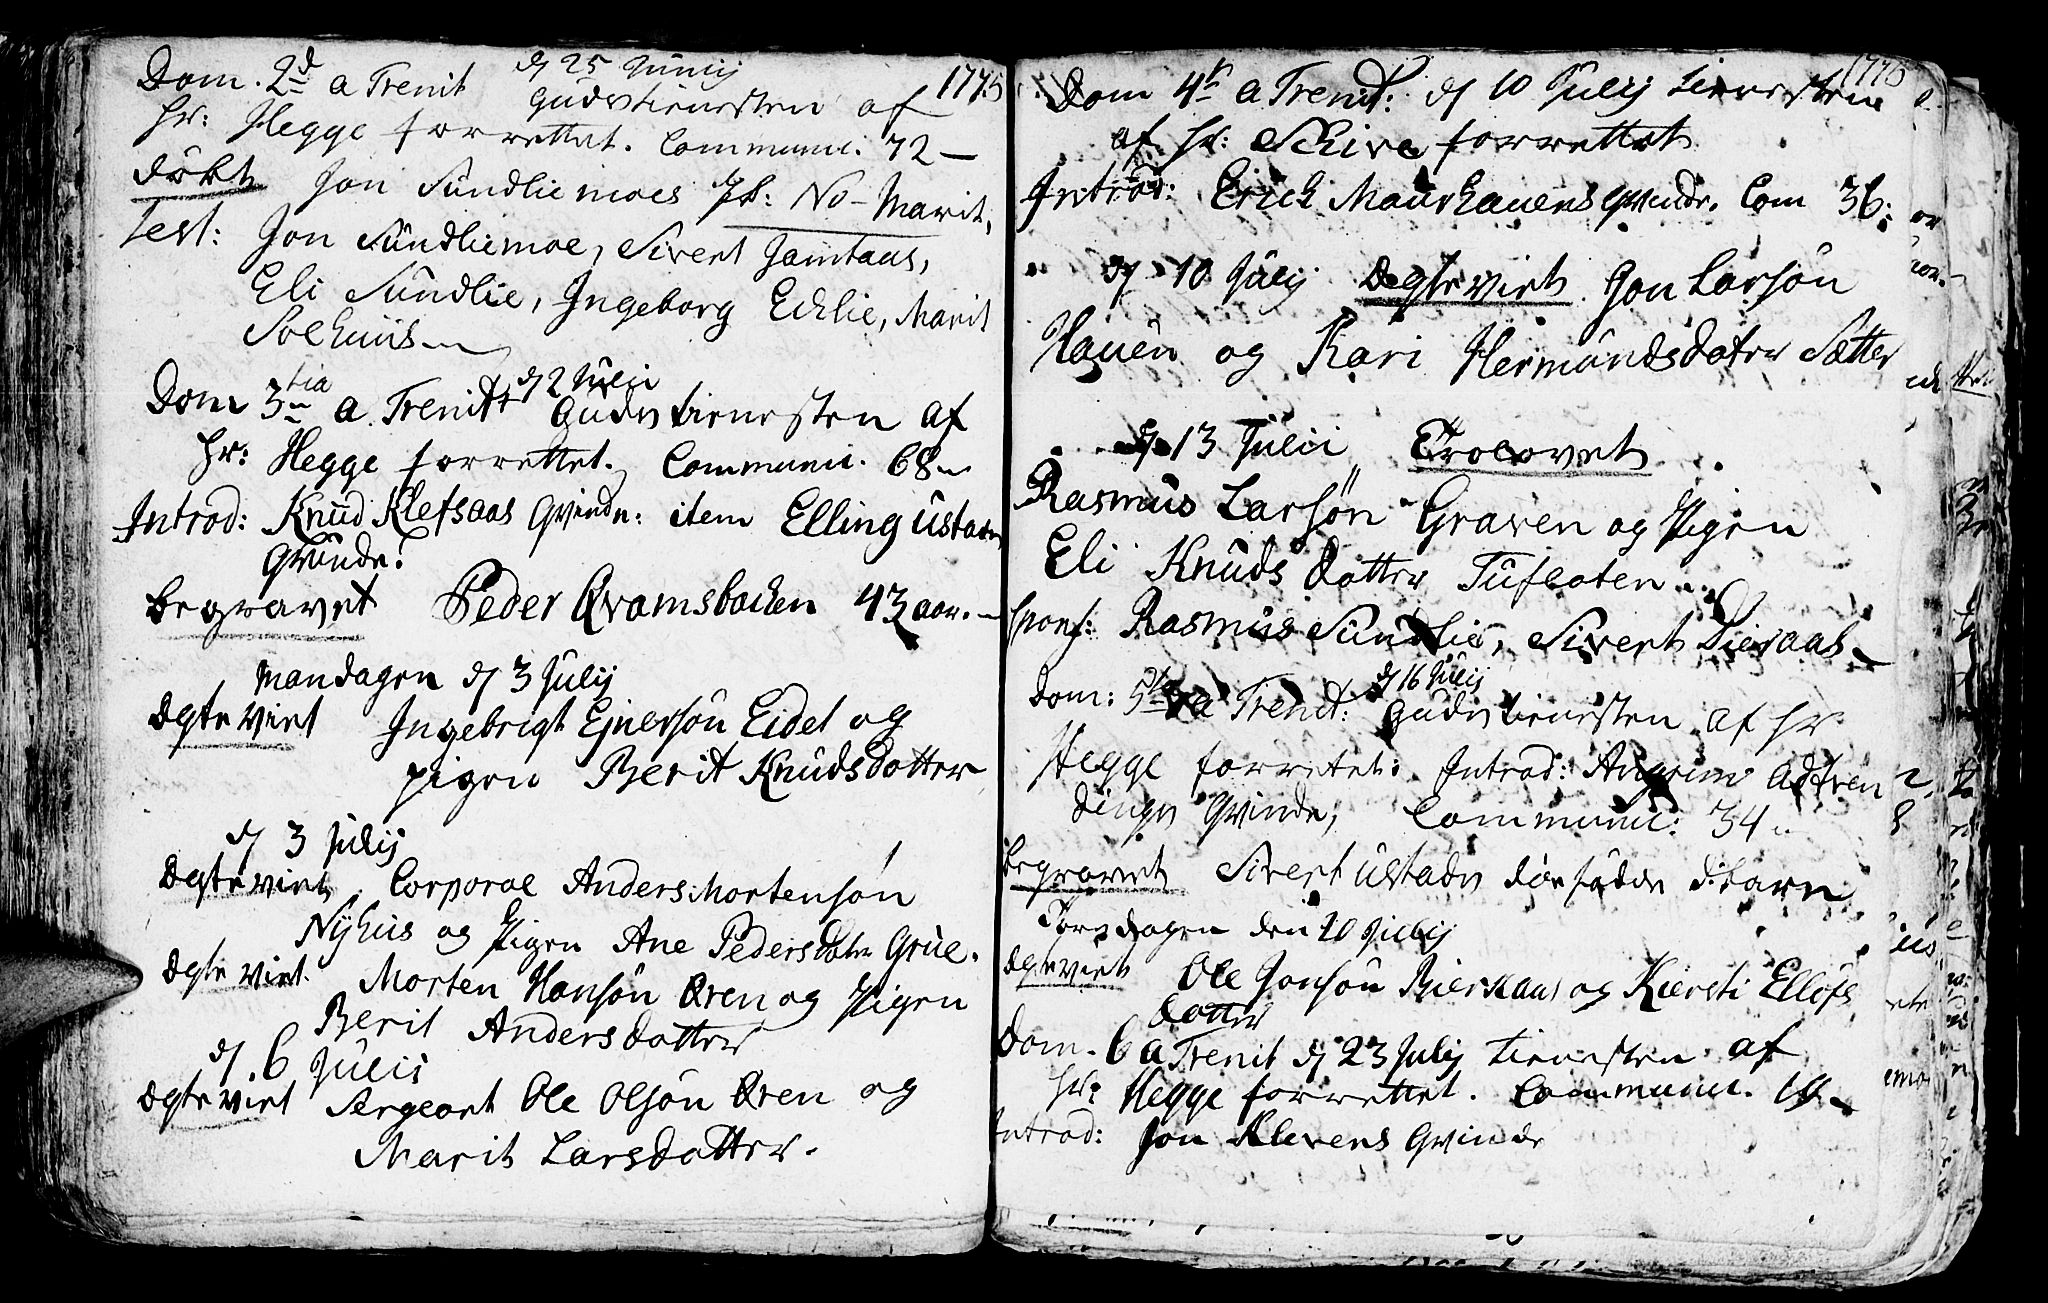 Dom. 2d a Trenit d 25 Junij 1775
Gudstienesten af
Hr: Hegge forrettet. Communi: 72 —
døbt Jon Sundliemoes No- Marit,
test: Jon Sundliemoe, Sivert Jamtaas,
Eli Sundlie, Ingeborg Echlie, Marit
Solhuus
Dom 3tia a. Trenit d 2 Julii Gudstienesten af
Hr: Hegge forrettet. Communi. 68
Introd: Knud Klefsaas Qvinde: item Elling Ustads
Qvinde.
begravet Peder Qvamsbachen 43 aar.
Mandagen d 3 Julij
Egteviet Ingebrigt Ejnersøn Eidet og
pigen Berit Knudsdotter
d 3 Julij
Egteviet Corporal Anders Mortensøn
Nyhus og Pigen Ane Pedersdatr Grue.
Egteviet Morten Hansøn Øren og Pigen
Berit Andersdotter
d. 6 Julii
Egteviet Sergeant Ole Olsøn Øren og
Marit Larsdotter.
1775
Dom 4t a Trenit: d 10 Julij tienesten
af Hr: Schive forrettet
Introd: Erich Maurhauens Qvinde. Com 36:
d 10 Julij Egteviet Jon Larsøn
Hauen og Kari Hermundsdotter Sætter
d 13 Julii Trolovet
Rasmus Larsøn Graven og Pigen
Eli Knuds dotter Tufloten
spons: Rasmus Sundlie, Sivert Lieraas
Dom: 5ta a Trenit: d 16 Julij Gudstienesten af Hr
Hegge forretet: Introd: Qvinde, Communi: 34
begravet Sivert Ustads dødfødde d:barn
Torsdagen den 20 Julij
Egteviet Ole Jonsøn Bierkaas og Kiersti Ellofs
dotter
Dom. 6 a Trenit d 23 Julij tienesten af
Hr: Hegge forrettet. Communi. 19
Introd: Jon Klevens Qvinde